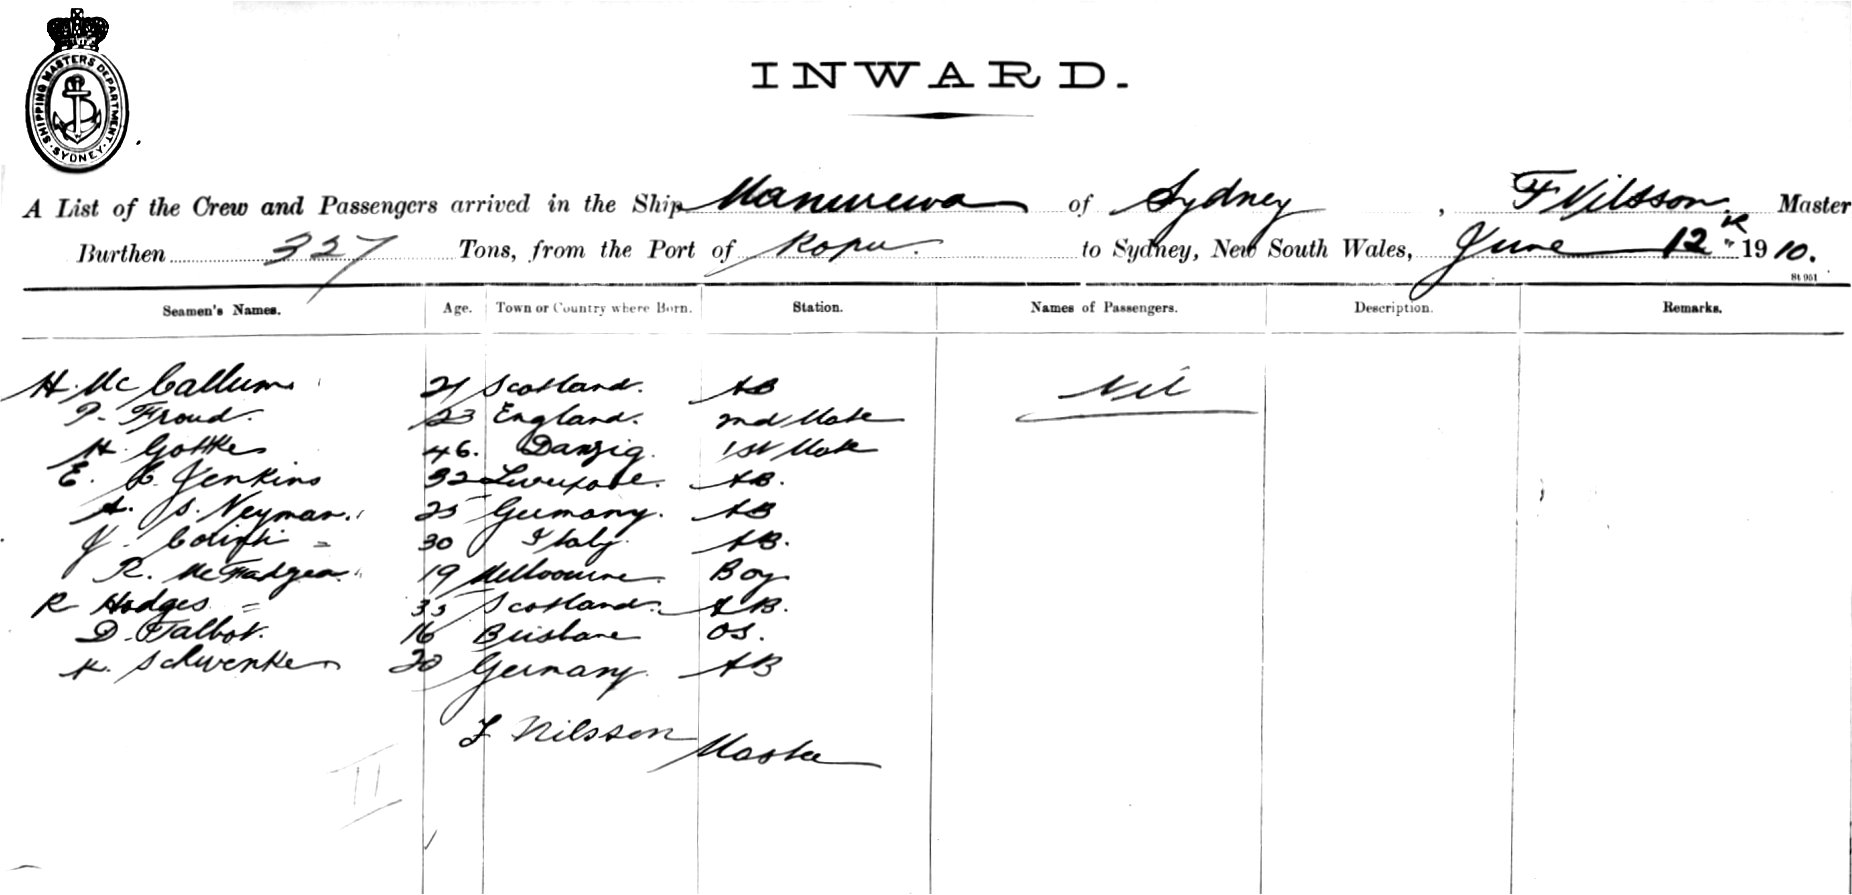 SHIPPING MASTERS DEPARTMENT · SYDNEY ·
INWARD.
A List of the Crew and Passengers arrived in the Ship Manurewa of Sydney, F Nilsson. Master
Burthen 327 Tons, from the Port of Kopu. to Sydney, New South Wales, June 12th 1910.
St 951
Seamen's Names. Age. Town or Country where Born. Station. Names of Passengers. Description. Remarks.
H. McCallum 21 Scotland. AB Nil
P. Froud. 23 England. 2nd Mate
H. Gottke 46. Danzig. 1st Mate
E. E. Jenkins 32 Liverpool. AB.
A. S. Neyman. 25 Germany. AB
J. 30 Italy. AB.
R. McFadgen 19 Melbourne. Boy
R Hodges 35 Scotland. AB.
D. Talbot. 16 Brisbane OS.
K. Schwenke 20 Germany. AB
F Nilsson Master
11